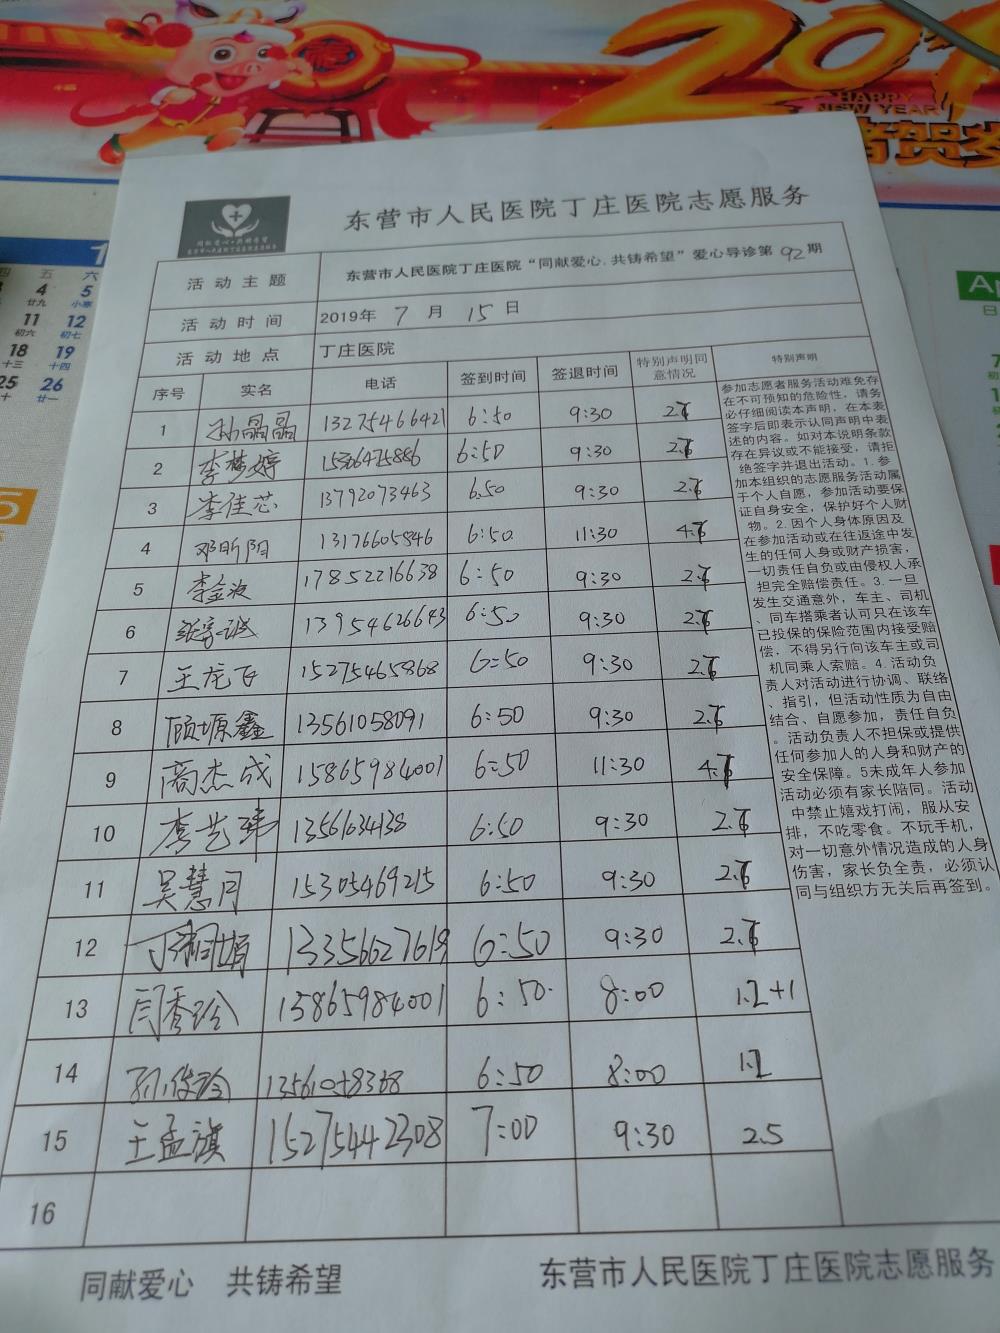 HAPPY
NEW YEAR
东营市人民医院丁庄医院志愿服务
活动主题 东营市人民医院丁庄医院“同献爱心.共铸希望”爱心导诊第92期
活动时间 2019年 7 月 15 日
活动地点 丁庄医院
序号 实名 电话 签到时间 签退时间 特别声明同意情况 特别声明
1 孙晶晶 13275466421 6:50 9:30
2 李梦婷 15306475886 6:50 9:30
3 李佳芯 13792073463 6.50 9:30
4 邓昕阳 13176605846 6:50 11:30
5 李金波 17852216638 6:50 9:30
6 13954626643 6:50 9:30
7 王龙飞 15275465868 6:50 9:30
8 顾塬鑫 13561058091 6:50 9:30
9 商杰成 15865984001 6:50 11:30
10 李艺玮 1356634138 6:50 9:30
11 吴慧月 15305469215 6:50 9:30
12 13356627619 6:50 9:30
13 闫秀珍 15865984001 6:50. 8:00 1.2+1
14 孙俊玲 13561058368 6:50 8:00 1.2
15 王孟旗 15275442308 7:00 9:30 2.5
16
参加志愿者服务活动难免存
在不可预知的危险性，请务
必仔细阅读本声明，在本表
签字后即表示认同声明中表
述的内容。如对本说明条款
存在异议或不能接受，请拒
绝签字并退出活动。1. 参
加本组织的志愿服务活动属
于个人自愿，参加活动要保
证自身安全，保护好个人财
物。2. 因个人身体原因及
在参加活动或在往返途中发
生的任何人身或财产损害，
一切责任自负或由侵权人承
担完全赔偿责任。3. 一旦
发生交通意外，车主、司机
、同车搭乘者认可只在该车
已投保的保险范围内接受赔
偿，不得另行向该车主或司
机同乘人索赔。4. 活动负
责人对活动进行协调、联络
、指引，但活动性质为自由
结合、自愿参加，责任自负
。活动负责人不担保或提供
任何参加人的人身和财产的
安全保障。5未成年人参加
活动必须有家长陪同。活动
中禁止嬉戏打闹，服从安
排，不吃零食。不玩手机，
对一切意外情况造成的人身
伤害，家长负全责，必须认
同与组织方无关后再签到。
同献爱心 共铸希望
东营市人民医院丁庄医院志愿服务